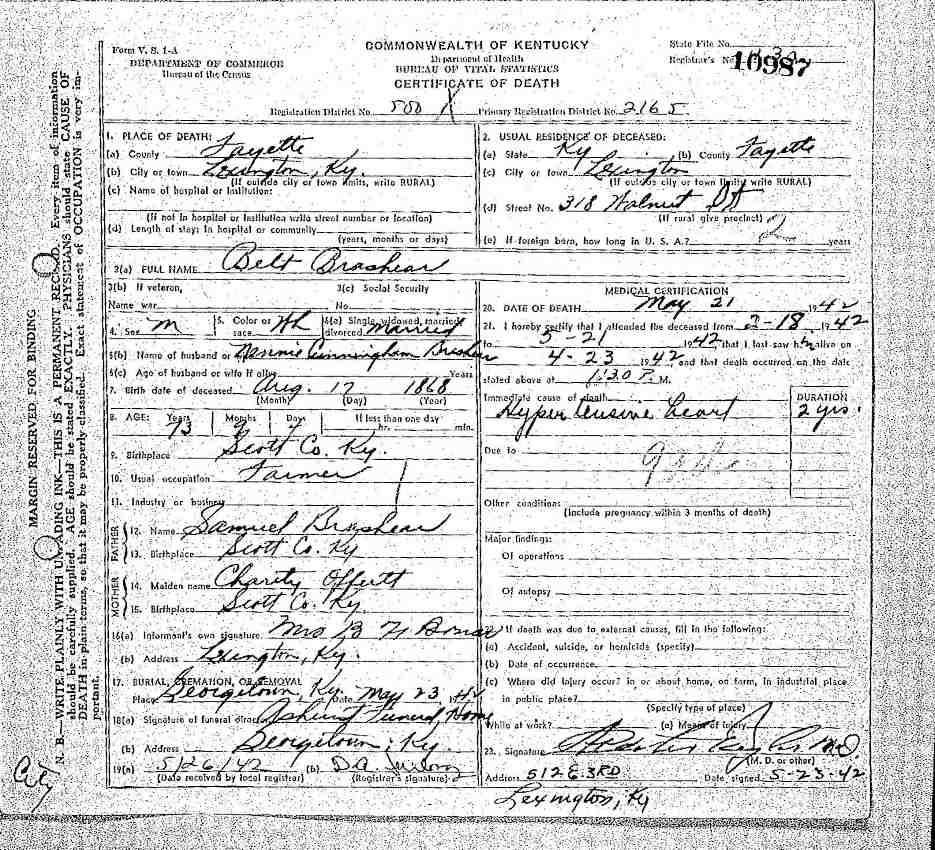 Form V. S. 1-A
DEPARTMENT OF COMMERCE
Bureau of the Census
COMMONWEALTH OF KENTUCKY
Department of Health
BUREAU OF VITAL STATISTICS
CERTIFICATE OF DEATH
State File No.
Registrar's No.
10987
Registration District No. 500 Primary Registration District No. 2165
MARGIN RESERVED FOR BINDING
N. B.—WRITE PLAINLY WITH UNFADING INK—THIS IS A PERMANENT RECORD. Every item of information
should be carefully supplied. AGE should be stated EXACTLY. PHYSICIANS should state CAUSE OF
DEATH in plain terms, so that it may be properly classified. Exact statement of OCCUPATION is very im-
portant.
City
1. PLACE OF DEATH:
(a) County Fayette
(b) City or town Lexington, Ky.
(If outside city or town limits, write RURAL)
(c) Name of hospital or institution:
(If not in hospital or institution write street number or location)
(d) Length of stay: In hospital or community
(years, months or days)
2. USUAL RESIDENCE OF DECEASED:
(a) State Ky (b) County Fayette
(c) City or town Lexington
(If outside city or town limits write RURAL)
(d) Street No. 318 Walnut St
(If rural give precinct)
(e) If foreign born, how long in U. S. A.? years
3(a) FULL NAME Belt Brashear
3(b) If veteran, 3(c) Social Security
Name war No.
4. Sex M 5. Color or race Wh 6(a) Single, widowed, married, divorced Married
6(b) Name of husband or Nannie Cunningham Brashear
6(c) Age of husband or wife if alive Years
7. Birth date of deceased Aug. 17 1868
(Month) (Day) (Year)
8. AGE: Years Months Days If less than one day
73 hr. min.
9. Birthplace Scott Co. Ky.
10. Usual occupation Farmer
11. Industry or business
FATHER
12. Name Samuel Brashear
13. Birthplace Scott Co. Ky
MOTHER
14. Maiden name Charity Offutt
15. Birthplace Scott Co. Ky.
16(a) Informent's own signature Mrs B
(b) Address Lexington, Ky.
17. BURIAL, CREMATION, OR REMOVAL
Place Georgetown, Ky. Date May 23 1942
18(a) Signature of funeral director Ashurst Funeral Home
(b) Address Georgetown, Ky.
19(a) 5/26/42 (b) D.A.
(Date received by local registrar) (Registrar's signature)
MEDICAL CERTIFICATION
20. DATE OF DEATH May 21 1942
21. I hereby certify that I attended the deceased from 2-18, 1942
to 5-21 1942 that I last saw him alive on
4-23 1942, and that death occurred on the date
stated above at 1:30 P. M.
Immediate cause of death DURATION
Hypertensive heart 2 yrs.
Due to
Other conditions
(Include pregnancy within 3 months of death)
Major findings:
Of operations
Of autopsy
22. If death was due to external causes, fill in the following:
(a) Accident, suicide, or homicide (specify)
(b) Date of occurrence
(c) Where did injury occur? in or about home, on farm, in industrial place
in public place?
(Specify type of place)
While at work? (e) Means of injury
23. Signature M.D.
(M. D. or other)
Address 512 E. 3RD Date signed 5-23-42
Lexington, Ky